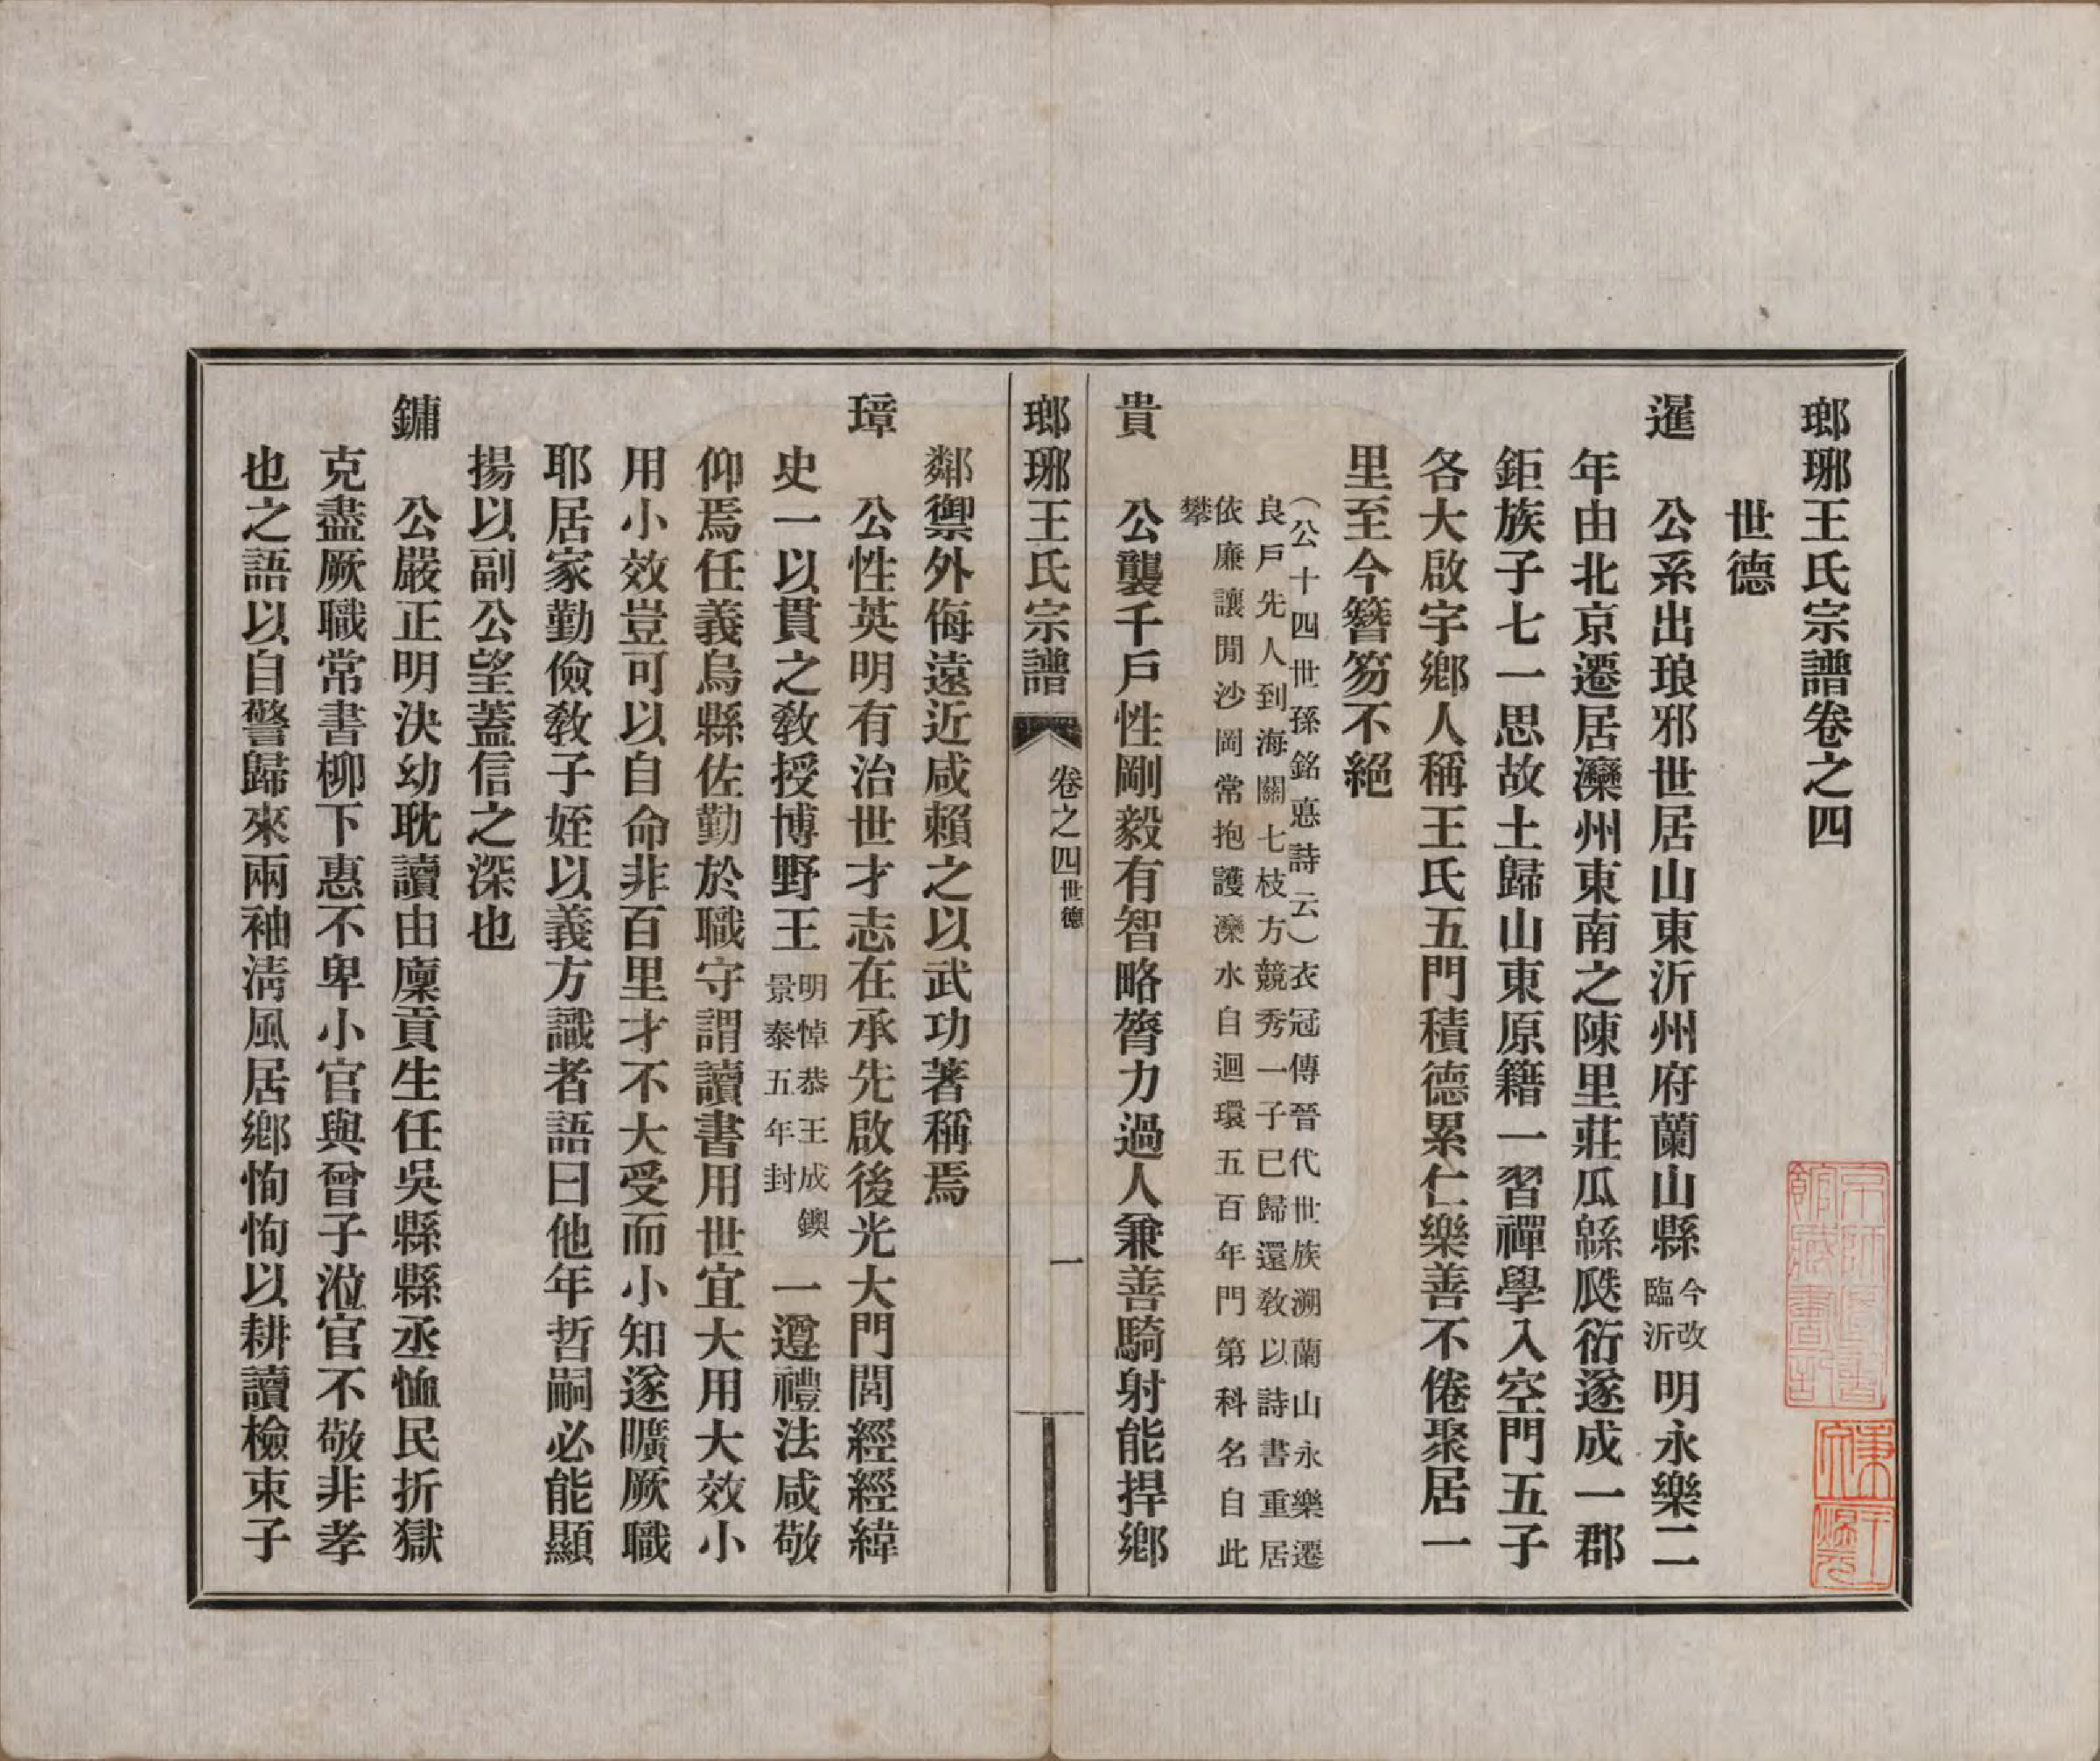 瑯琊王氏宗譜卷之四
世德
暹
公系出琅邪世居山東沂州府蘭山縣今改臨沂明永樂二
年由北京遷居灤州東南之陳里莊瓜緜瓞衍遂成一郡
鉅族子七一思故土歸山東原籍一習禪學入空門五子
各大啟宇鄉人稱王氏五門積德累仁樂善不倦聚居一
里至今簪笏不絕
（公十四世孫銘悳詩云）衣冠傳晉代世族溯蘭山永樂遷
良戶先人到海關七枝方競秀一子已歸還教以詩書重居
依廉讓閒沙岡常抱護灤水自迴環五百年門第科名自此
攀
貴
公襲千戶性剛毅有智略膂力過人兼善騎射能捍鄉
瑯琊王氏宗譜
卷之四世德
一
鄰禦外侮遠近咸賴之以武功著稱焉
璋
公性英明有治世才志在承先啟後光大門閭經經緯
史一以貫之教授博野王明悼恭王成鐭景泰五年封一遵禮法咸敬
仰焉任義烏縣佐勤於職守謂讀書用世宜大用大效小
用小效豈可以自命非百里才不大受而小知遂曠厥職
耶居家勤儉教子姪以義方識者語曰他年哲嗣必能顯
揚以副公望蓋信之深也
鏞
公嚴正明決幼耽讀由廩貢生任吳縣縣丞恤民折獄
克盡厥職常書柳下惠不卑小官與曾子涖官不敬非孝
也之語以自警歸來兩袖淸風居鄉恂恂以耕讀檢束子